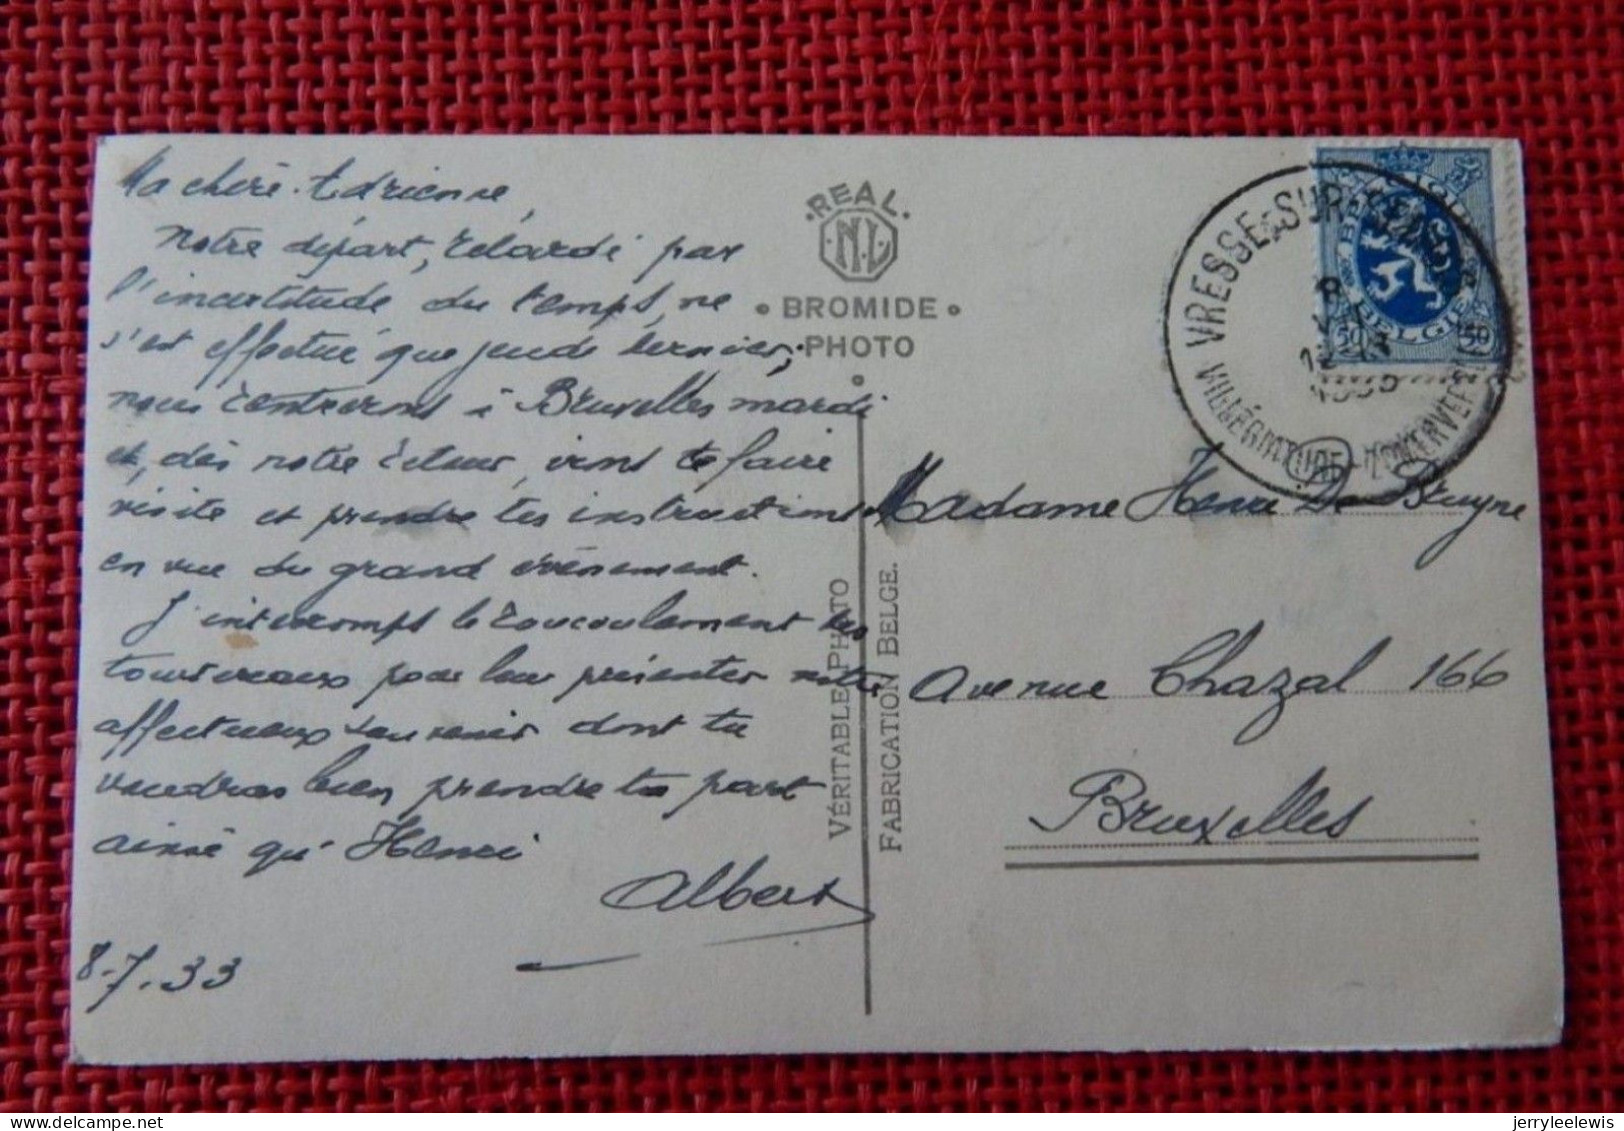 Ma chère Adrienne,
Notre départ, retardé par
l'incertitude du temps, ne
s'est effectué que jeudi dernier;
nous rentrerons à Bruxelles mardi
et, dès notre retour, irons te faire
visite et prendre tes instructions
en vue du grand évènement.
J'interromps le roucoulement des
tourtereaux pour leur présenter notre
affectueux souvenir dont tu
voudras bien prendre ta part
ainsi qu'Henri
Albert
8-7.33
·REAL·
N.L.
• BROMIDE •
PHOTO
VÉRITABLE PHOTO
FABRICATION BELGE.
VRESSE-SUR-SEMOIS
8
1933
VILLÉGIATURE
BELGIE
50 50
Madame Henri De Bruyne
Avenue Chazal 166
Bruxelles
jerryleelewis